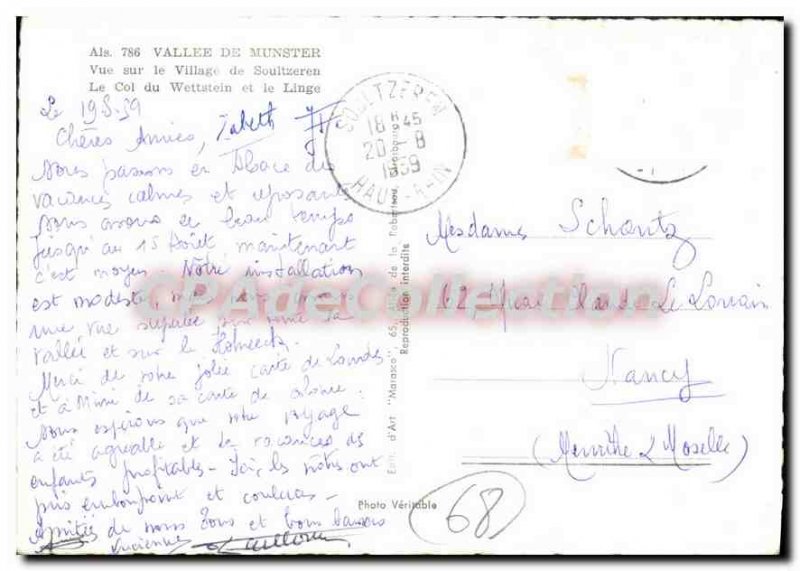 Als. 786 VALLEE DE MUNSTER
Vue sur le Village de Soultzeren
Le Col du Wettstein et le Linge
Le 19 8-59
Chères Amies,
Nous passons en Alsace des
vacances calmes et reposantes
nous avons eu beau temps
jusqu'au 15 Août, maintenant
c'est moyen. Notre installation
est modeste, mais
une vue superbe sur la
vallée et sur le Hohneck.
Merci de votre jolie carte de Lourdes
et à Mimi de sa carte de
Nous espérons que votre voyage
a été agréable et les vacances des
enfants profitables - Ici, les nôtres ont
pris embonpoint et couleurs -
Amitiés de nous tous et bons baisers
Lucienne
SOULTZEREN
18 H 45
20 - 8
1959
HAUT-RHIN
Mesdames Schontz
42 quai Claude Le Lorrain
Nancy
(Meurthe & Moselle)
Edit. d'Art "Marasco" 65, de la Robertsau Strasbourg
Reproduction interdite
CPAdeCollection
Photo Véritable
68